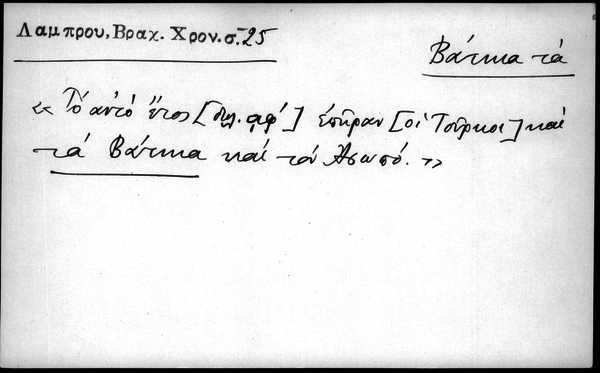 Λαμπρου, Βραχ. Χρον. σ. 25
Βάτικα τὰ
« Τὸ αὐτὸ ἔτος [δηλ. ͵αφ'] ἐπῆραν [οἱ Τοῦρκοι] καὶ
τὰ Βάτικα καὶ τὸν Ἀσωπό. »